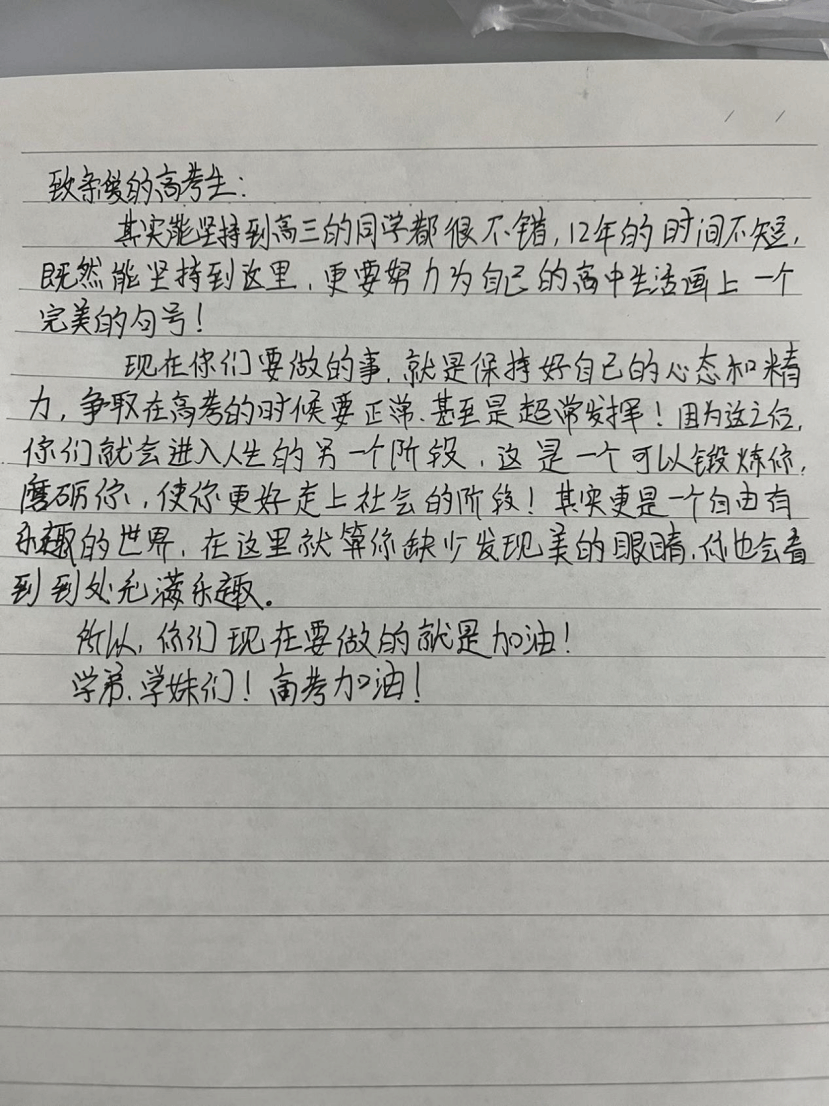 致亲爱的高考生:
其实能坚持到高三的同学都很不错,12年的时间不短,
既然能坚持到这里,更要努力为自己的高中生活画上一个
完美的句号!
现在你们要做的事,就是保持好自己的心态和精
力,争取在高考的时候要正常、甚至是超常发挥!因为这之后,
你们就会进入人生的另一个阶段,这是一个可以锻炼你,
磨砺你,使你更好走上社会的阶段!其实更是一个自由有
乐趣的世界,在这里就算你缺少发现美的眼睛,你也会看
到到处充满乐趣。
所以,你们现在要做的就是加油!
学弟、学妹们!高考加油!